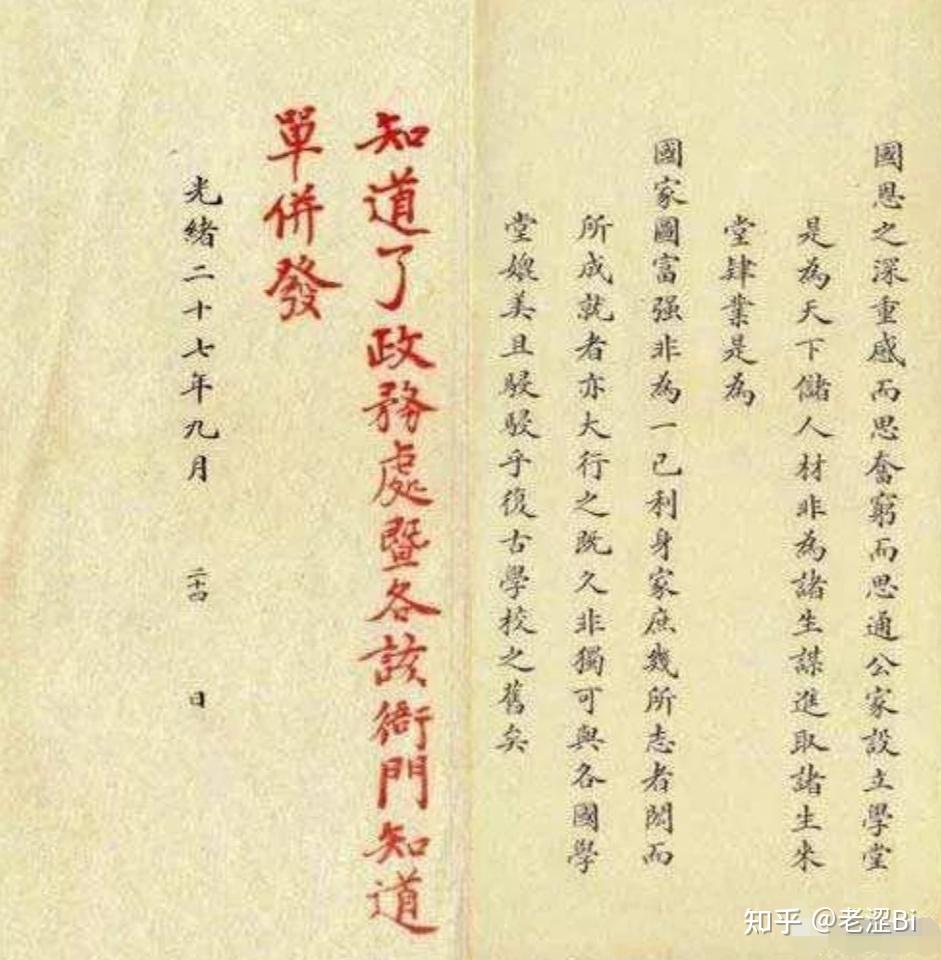 國恩之深重感而思奮窮而思通公家設立學堂
是為天下儲人材非為諸生謀進取諸生來
堂肄業是為
國家圖富强非為一己利身家庶幾所志者閎而
所成就者亦大行之既久非獨可與各國學
堂媲美且駸駸乎復古學校之舊矣
知道了政務處暨各該衙門知道
單併發
光緒二十七年九月 二十四 日
知乎 @老涩Bi